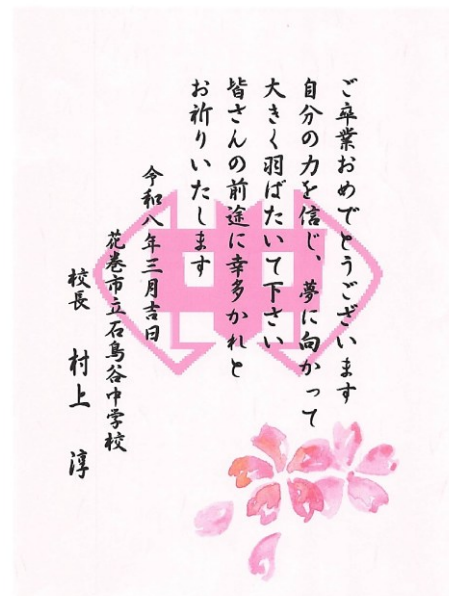 ご卒業おめでとうございます
自分の力を信じ、夢に向かって
大きく羽ばたいて下さい
皆さんの前途に幸多かれと
お祈りいたします
令和八年三月吉日
花巻市立石鳥谷中学校
校長 村上 淳